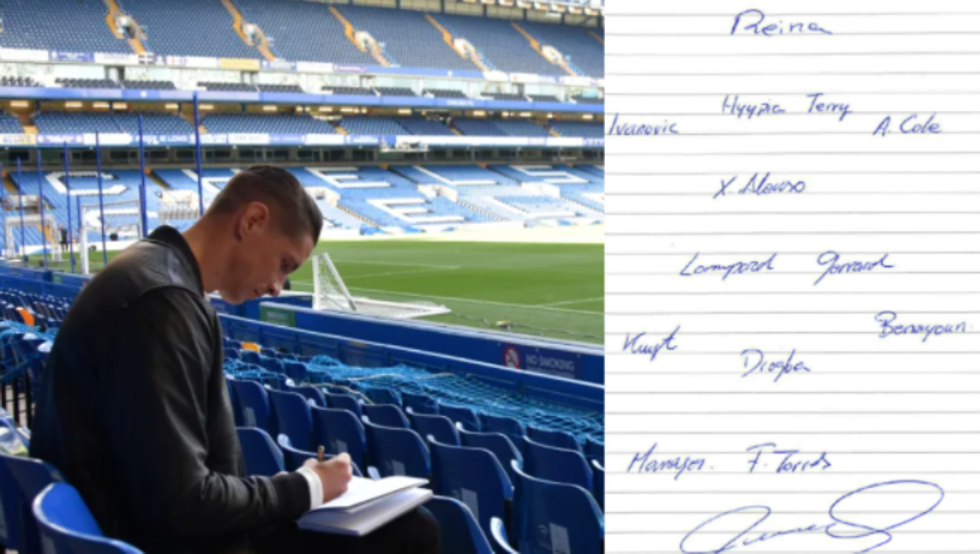 NO SMOKING
Reina
Hyypia Terry
Ivanovic A. Cole
X. Alonso
Lampard Gerrard
Benayoun.
Kuyt
Drogba
Manager. F. Torres